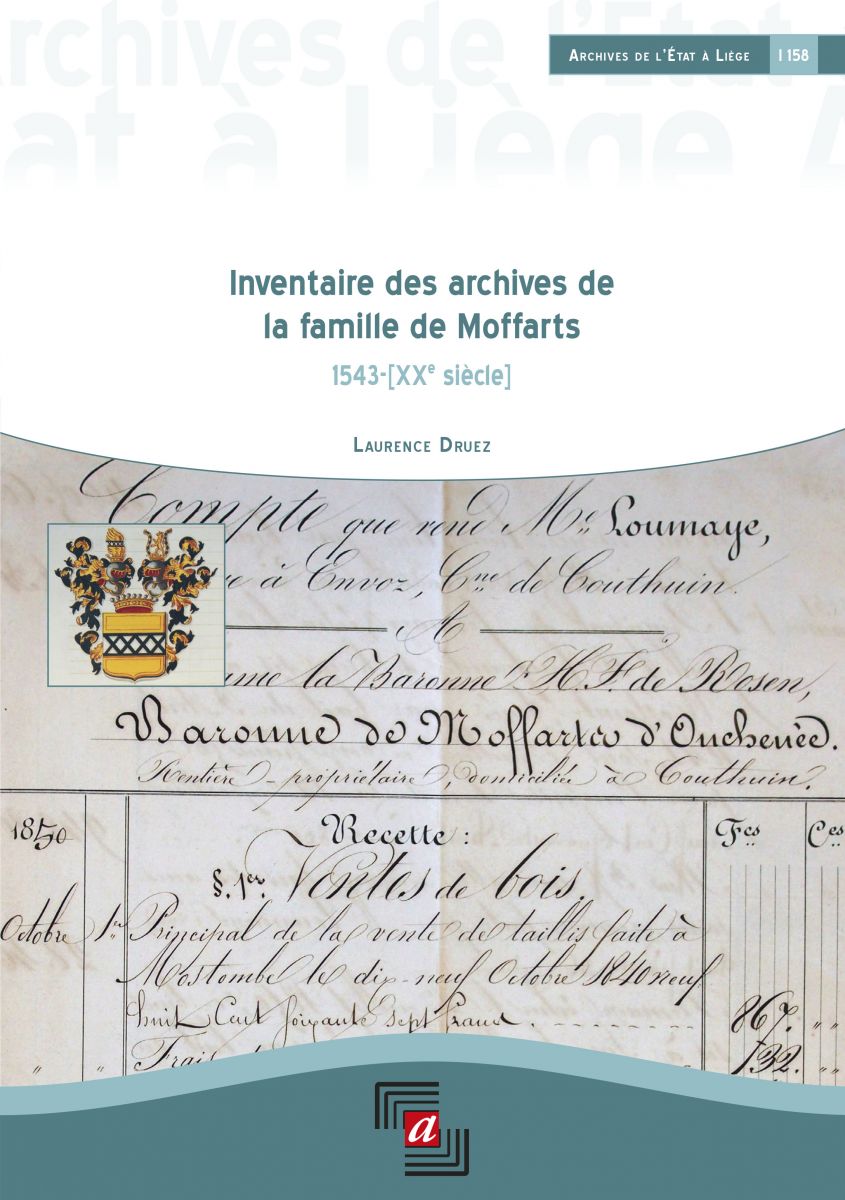 Archives de l'État à
État à Liège A
Archives de l'État à Liège I 158
Inventaire des archives de
la famille de Moffarts
1543-[XXe siècle]
Laurence Druez
Compte que rend Me. Loumaye,
à Envoz, Cne de Couthuin.
A
la Baronne H. F. de Rosen,
Baronne de Moffarts d'Onchenée.
Rentière - propriétaire, domiciliée à Couthuin.
1850 Recette : Fcs Ces
§. 1er. Ventes de bois.
Octobre 1er Principal de la vente de taillis faite à
Mostombe le dix-neuf Octobre 1840 neuf
huit Cent soixante sept francs. 867. " "
" " Frais 132. " "
a